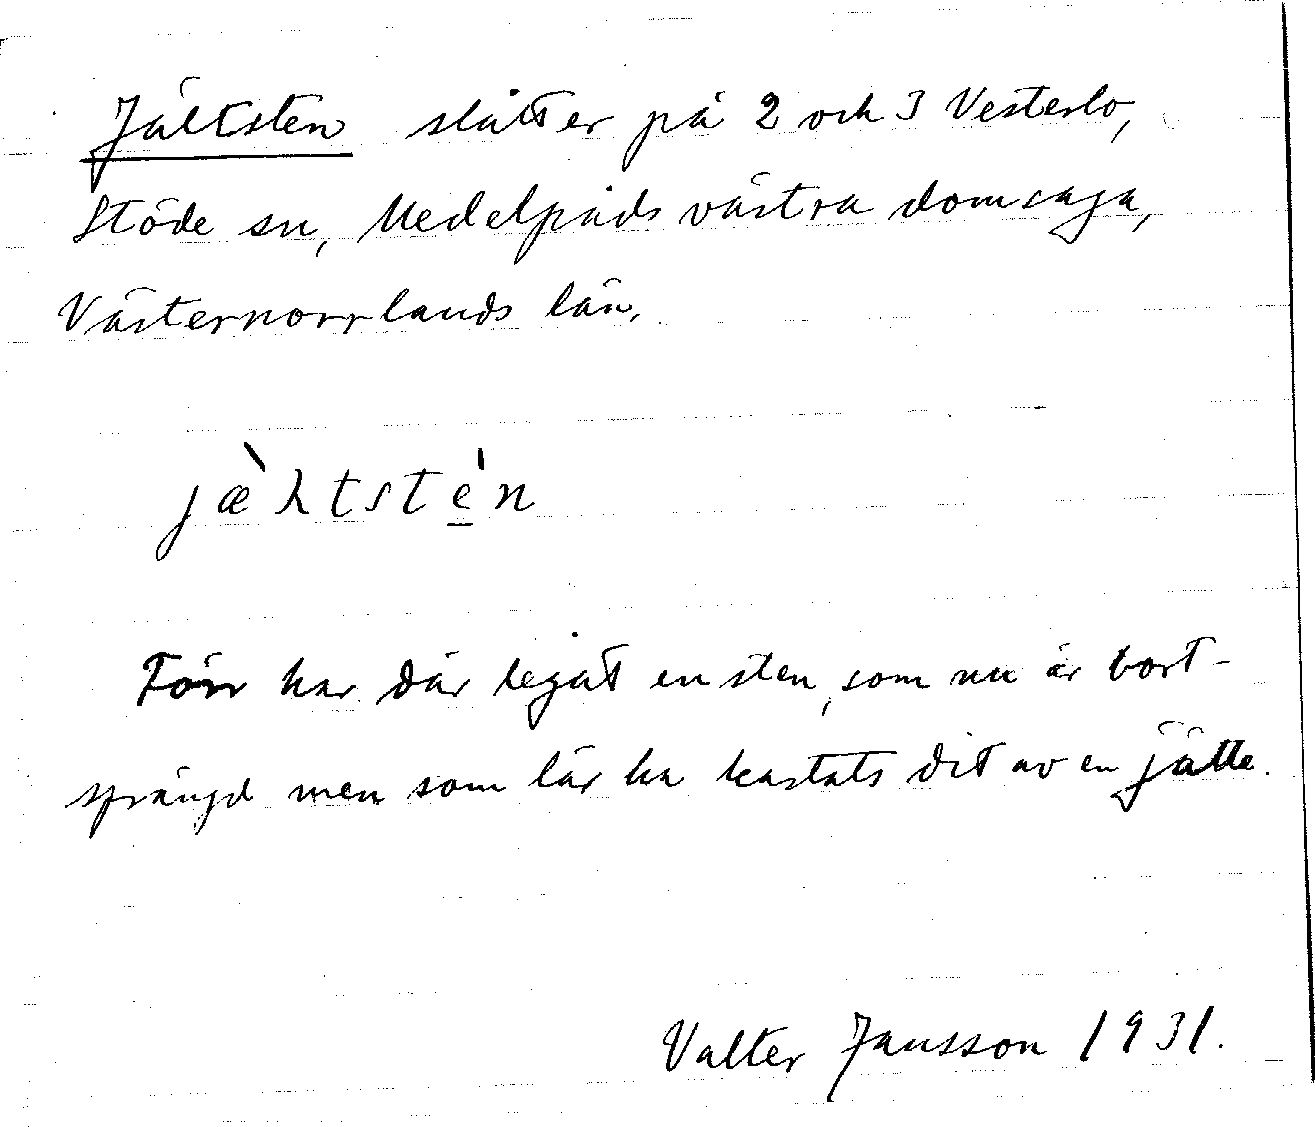 Jältsten slåtter på 2 och 3 Vesterlo,
Stöde sn, Medelpads västra domsaga,
Västernorrlands län.
jæ̀λtstè̱n
Förr har där legat en sten, som nu är bort-
sprängd men som lär ha kastats dit av en jätte.
Valter Jansson 1931.